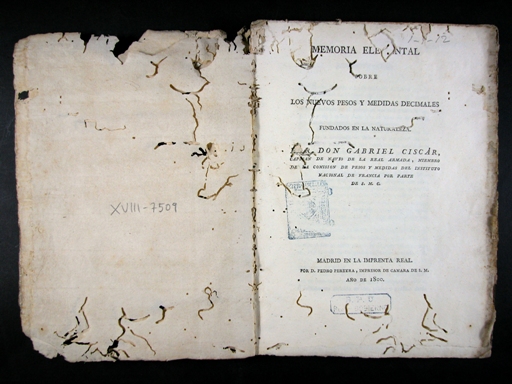 XVIII-7509
MEMORIA ELE NTAL
SOBRE
LOS NUEVOS PESOS Y MEDIDAS DECIMALES
FUNDADOS EN LA NATURALEZA.
DON GABRIEL CISCÁR,
CAPITAN DE NAVIO DE LA REAL ARMADA, MIEMBRO
DE LA COMISION DE PESOS Y MEDIDAS DEL INSTITUTO
NACIONAL DE FRANCIA POR PARTE
DE S. M. C.
MADRID EN LA IMPRENTA REAL.
POR D. PEDRO PEREYRA, IMPRESOR DE CAMARA DE S. M.
AÑO DE 1800.